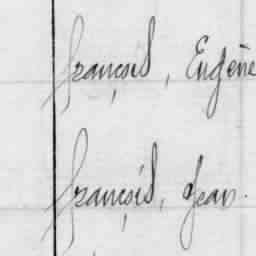 françois, Eugène
françois, Jean.